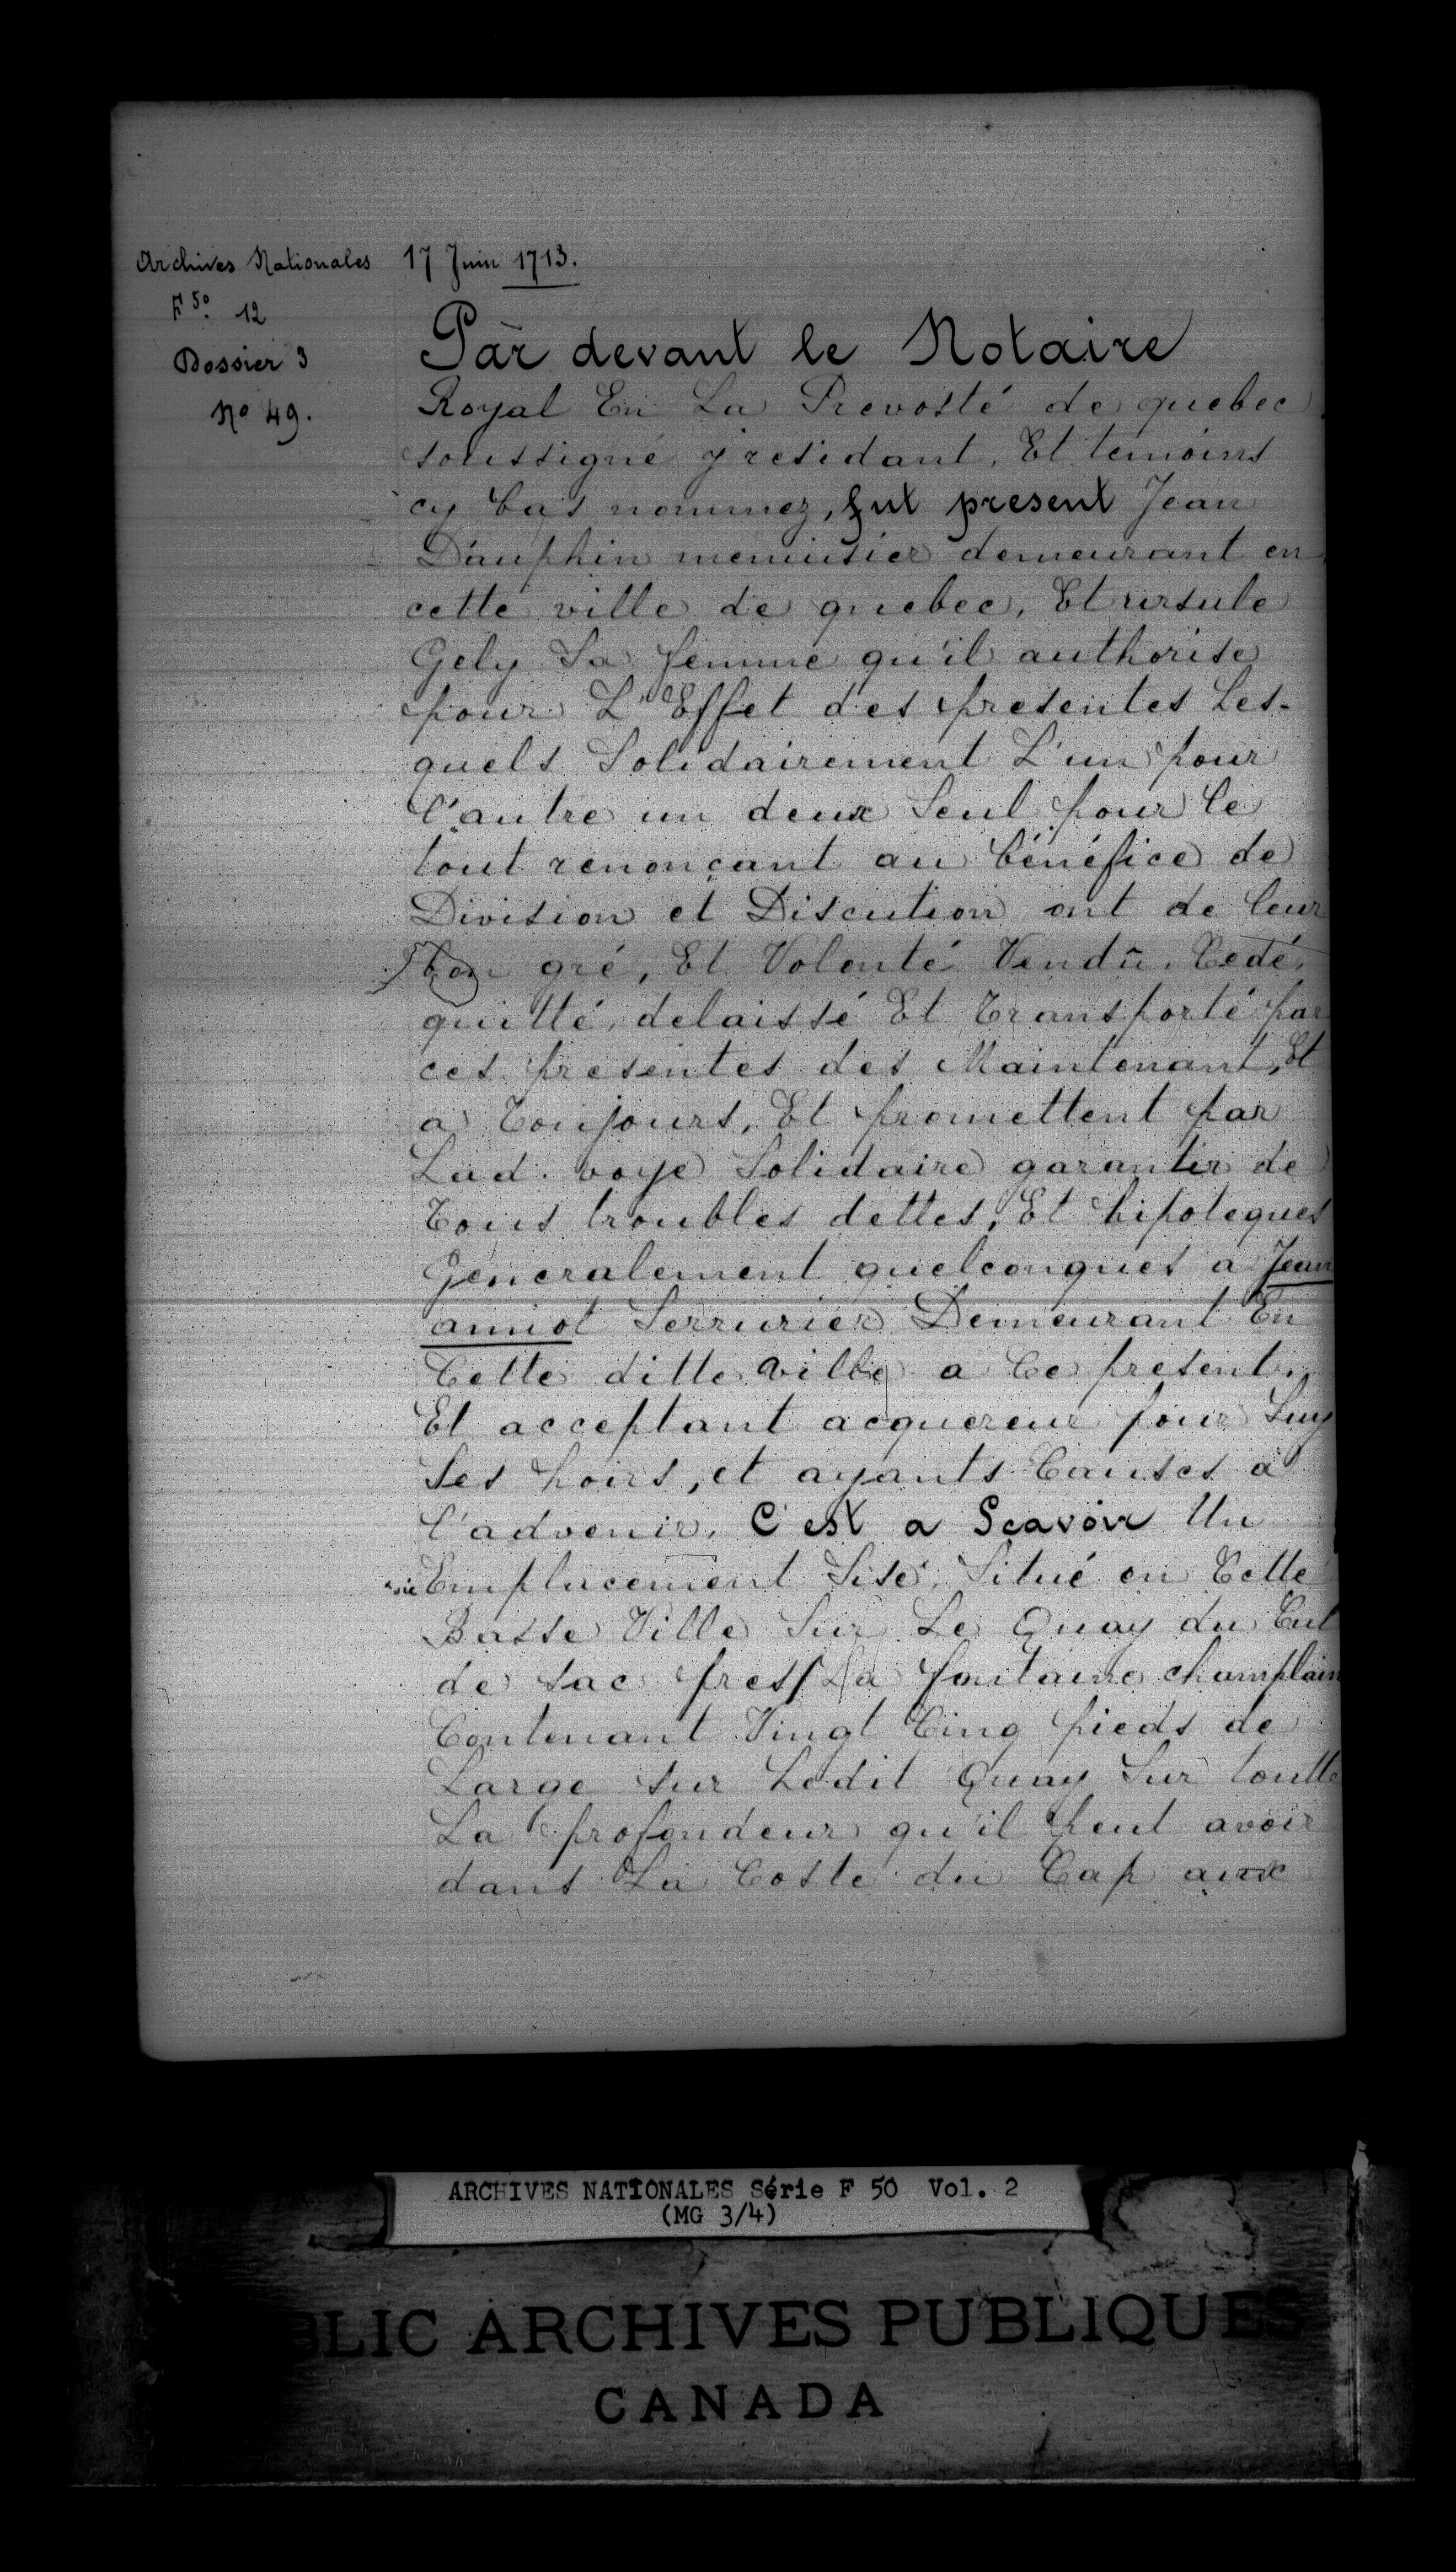 Archives Nationales
F 50. 12
Dossier 3
No 49.
17 Juin 1713.
Par devant le Notaire
Royal En La Prevosté de quebec
soussigné y residant, Et temoins
cy bas nommez, fut present Jean
Dauphin menuisier demeurant en
cette ville de quebec, Et ursule
Gely Sa femme qu'il authorise
pour L'Effet des presentes Les-
quels Solidairement L'un pour
l'autre un deux Seul pour le
tout renonçant au bénéfice de
Division et Discution ont de leur
bon gré, Et Volonté Vendu, Cedé,
quitté, delaissé Et Transporté par
ces presentes des Maintenant, Et
a Toujours, Et promettent par
Lad. voye Solidaire garantir de
Tous troubles dettes, Et hipoteques
Generalement quelconques a Jean
amiot Serrurier Demeurant En
Cette ditte ville a Ce present,
Et acceptant acquereur pour Luy
Ses hoirs, et ayants Causes a
l'advenir, C'est a Scavoir Un
Emplacement Sise, Situé en Cette
Basse Ville Sur Le Quay du Cul
de sac pres La fontaine champlain
Contenant Vingt Cinq pieds de
Large sur Ledit Quay Sur toutte
La profondeur qu'il peut avoir
dans La Coste du Cap aux
ARCHIVES NATIONALES Série F 50 Vol. 2
(MG 3/4)
BLIC ARCHIVES PUBLIQUES
CANADA